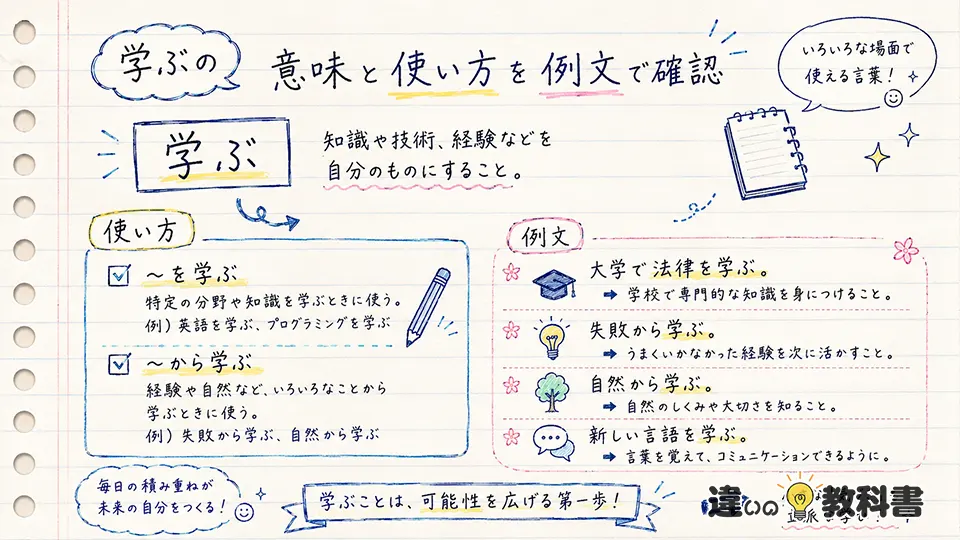 学ぶの
意味と使い方を例文で確認
いろいろな場面で
使える言葉！
学ぶ
知識や技術、経験などを
自分のものにすること。
使い方
～を学ぶ
特定の分野や知識を学ぶときに使う。
例）英語を学ぶ、プログラミングを学ぶ
～から学ぶ
経験や自然など、いろいろなことから
学ぶときに使う。
例）失敗から学ぶ、自然から学ぶ
例文
大学で法律を学ぶ。
➡ 学校で専門的な知識を身につけること。
失敗から学ぶ。
➡ うまくいかなかった経験を次に活かすこと。
自然から学ぶ。
➡ 自然のしくみや大切さを知ること。
新しい言語を学ぶ。
➡ 言葉を覚えて、コミュニケーションできるように。
毎日の積み重ねが
未来の自分をつくる！
学ぶことは、可能性を広げる第一歩！
違いの教科書